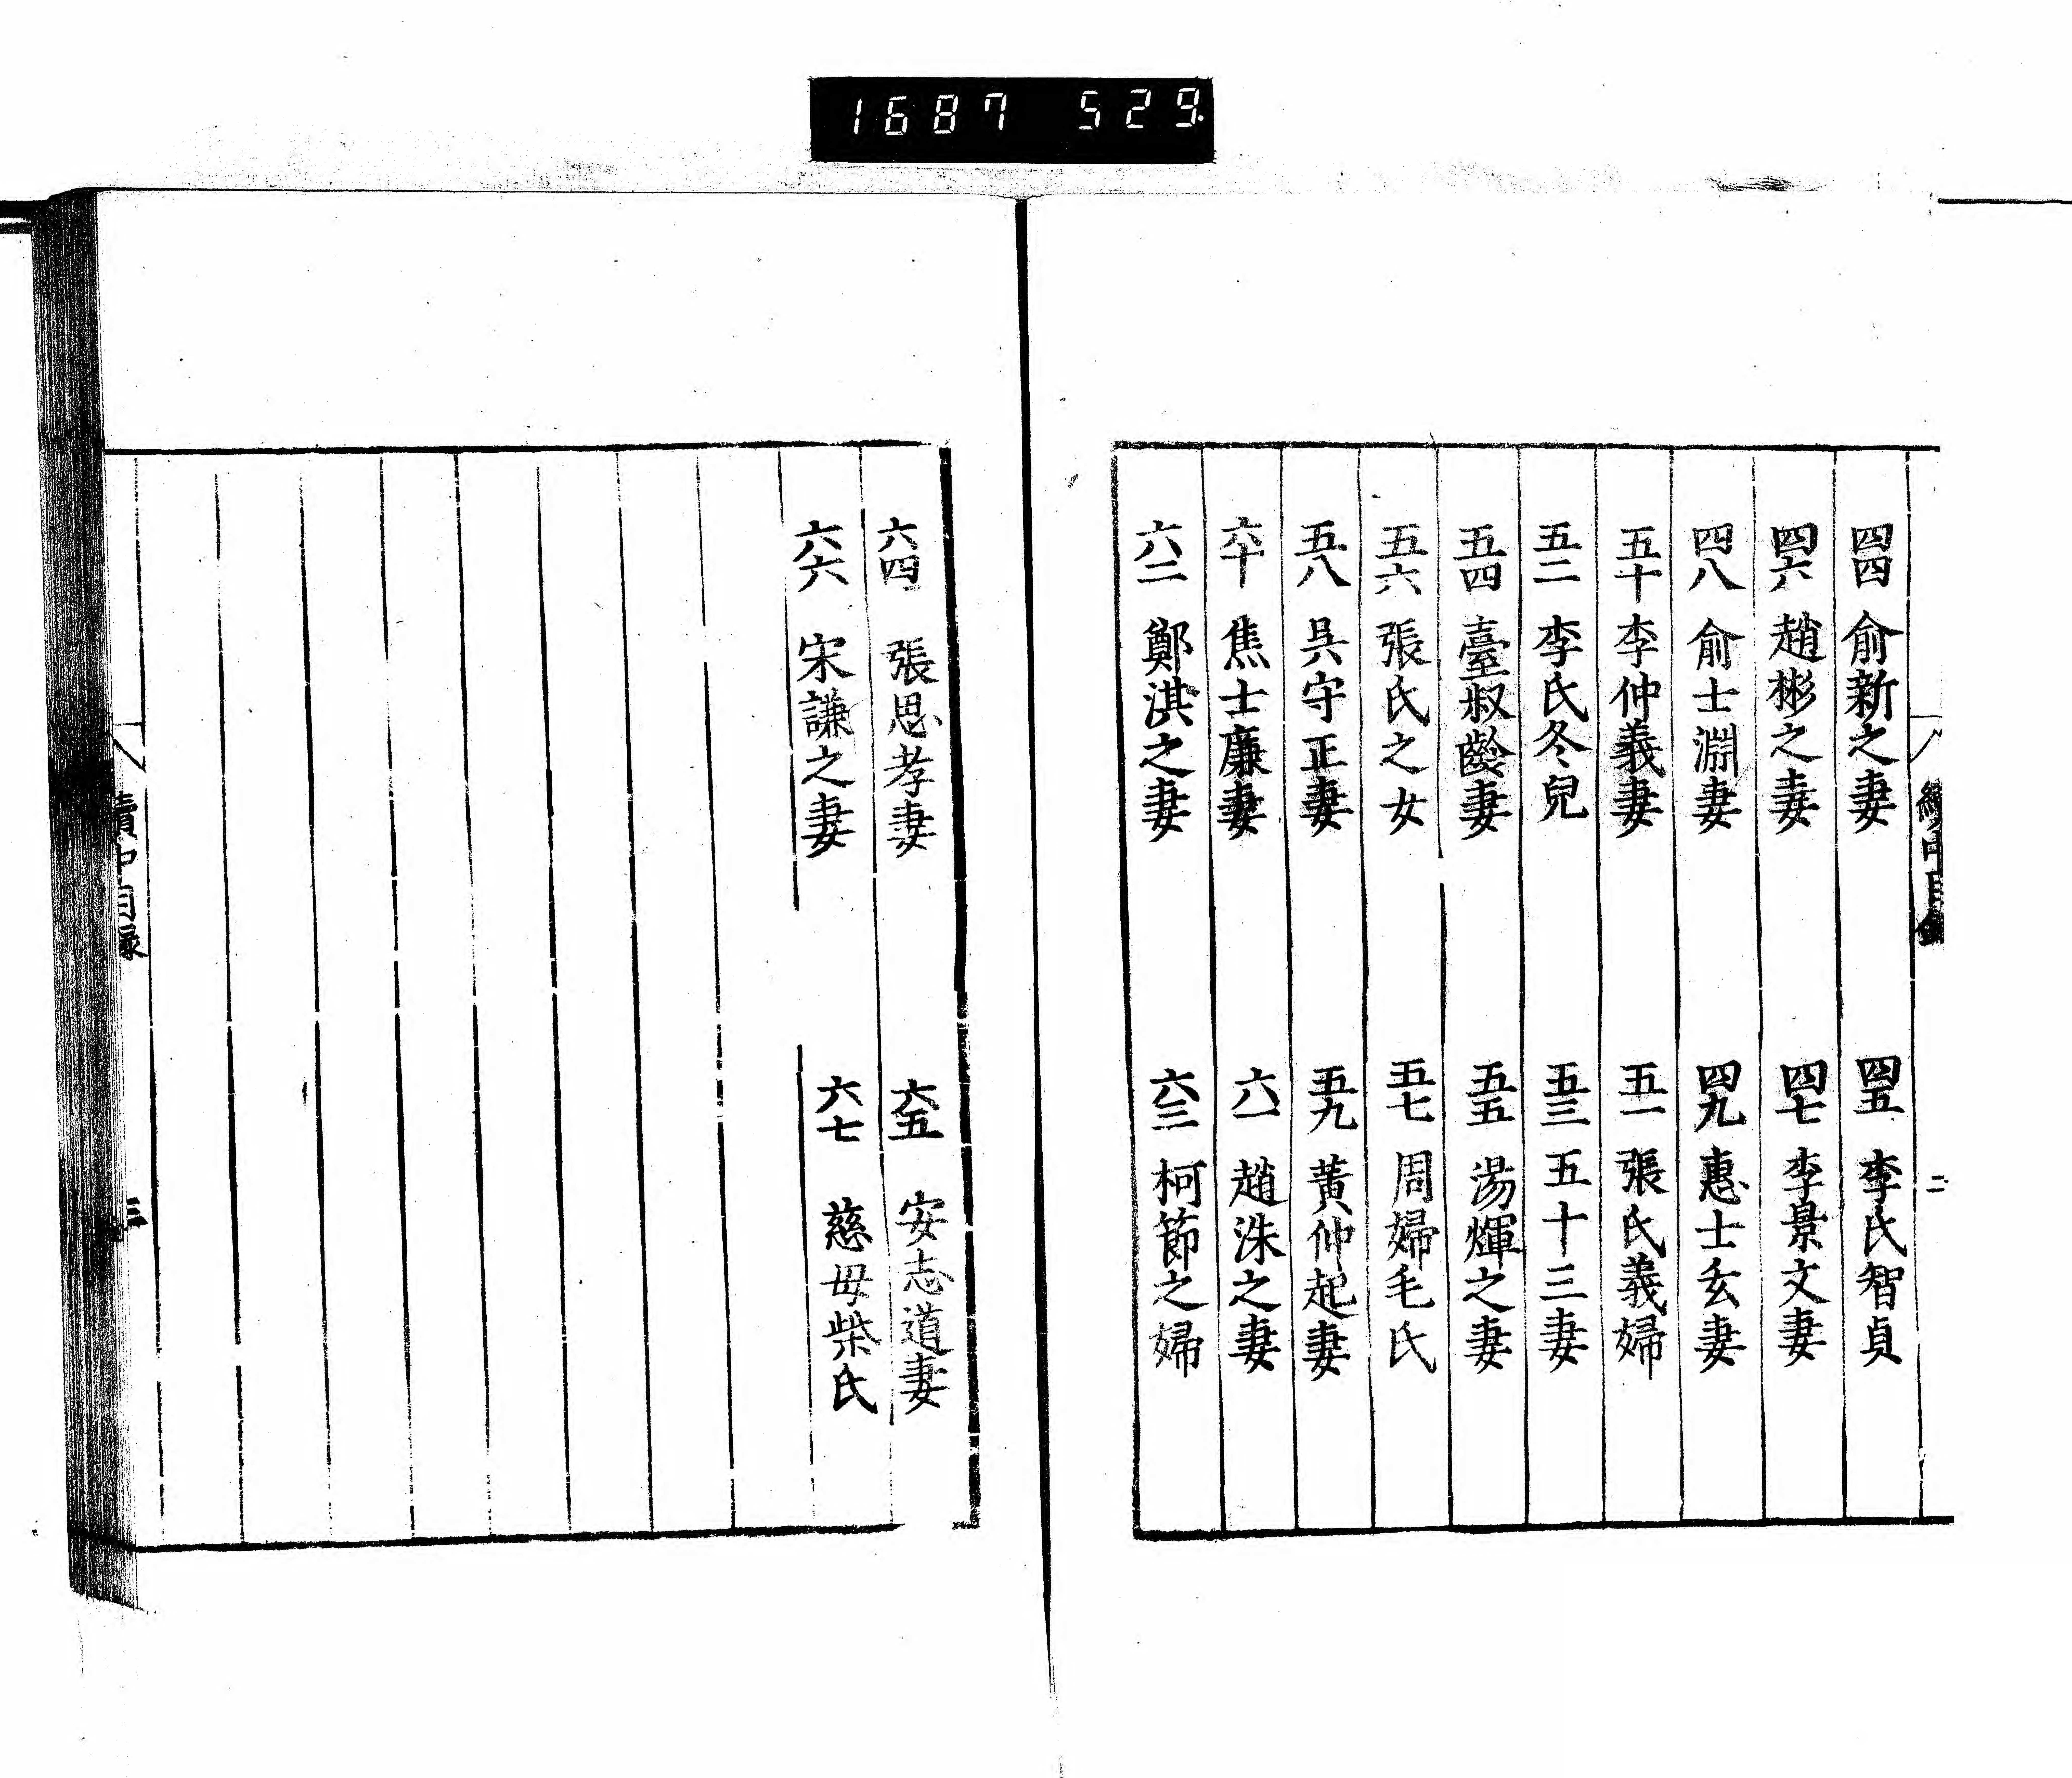 1687 529
續中目錄
二
四四 俞新之妻
四五 李氏智貞
四六 趙彬之妻
四七 李景文妻
四八 俞士淵妻
四九 惠士玄妻
五十 李仲義妻
五一 張氏義婦
五二 李氏冬兒
五三 五十三妻
五四 臺叔齡妻
五五 湯煇之妻
五六 張氏之女
五七 周婦毛氏
五八 吳守正妻
五九 黃仲起妻
六十 焦士廉妻
六一 趙洙之妻
六二 鄭淇之妻
六三 柯節之婦
六四 張思孝妻
六五 安志道妻
六六 宋謙之妻
六七 慈母柴氏
續中目录
三